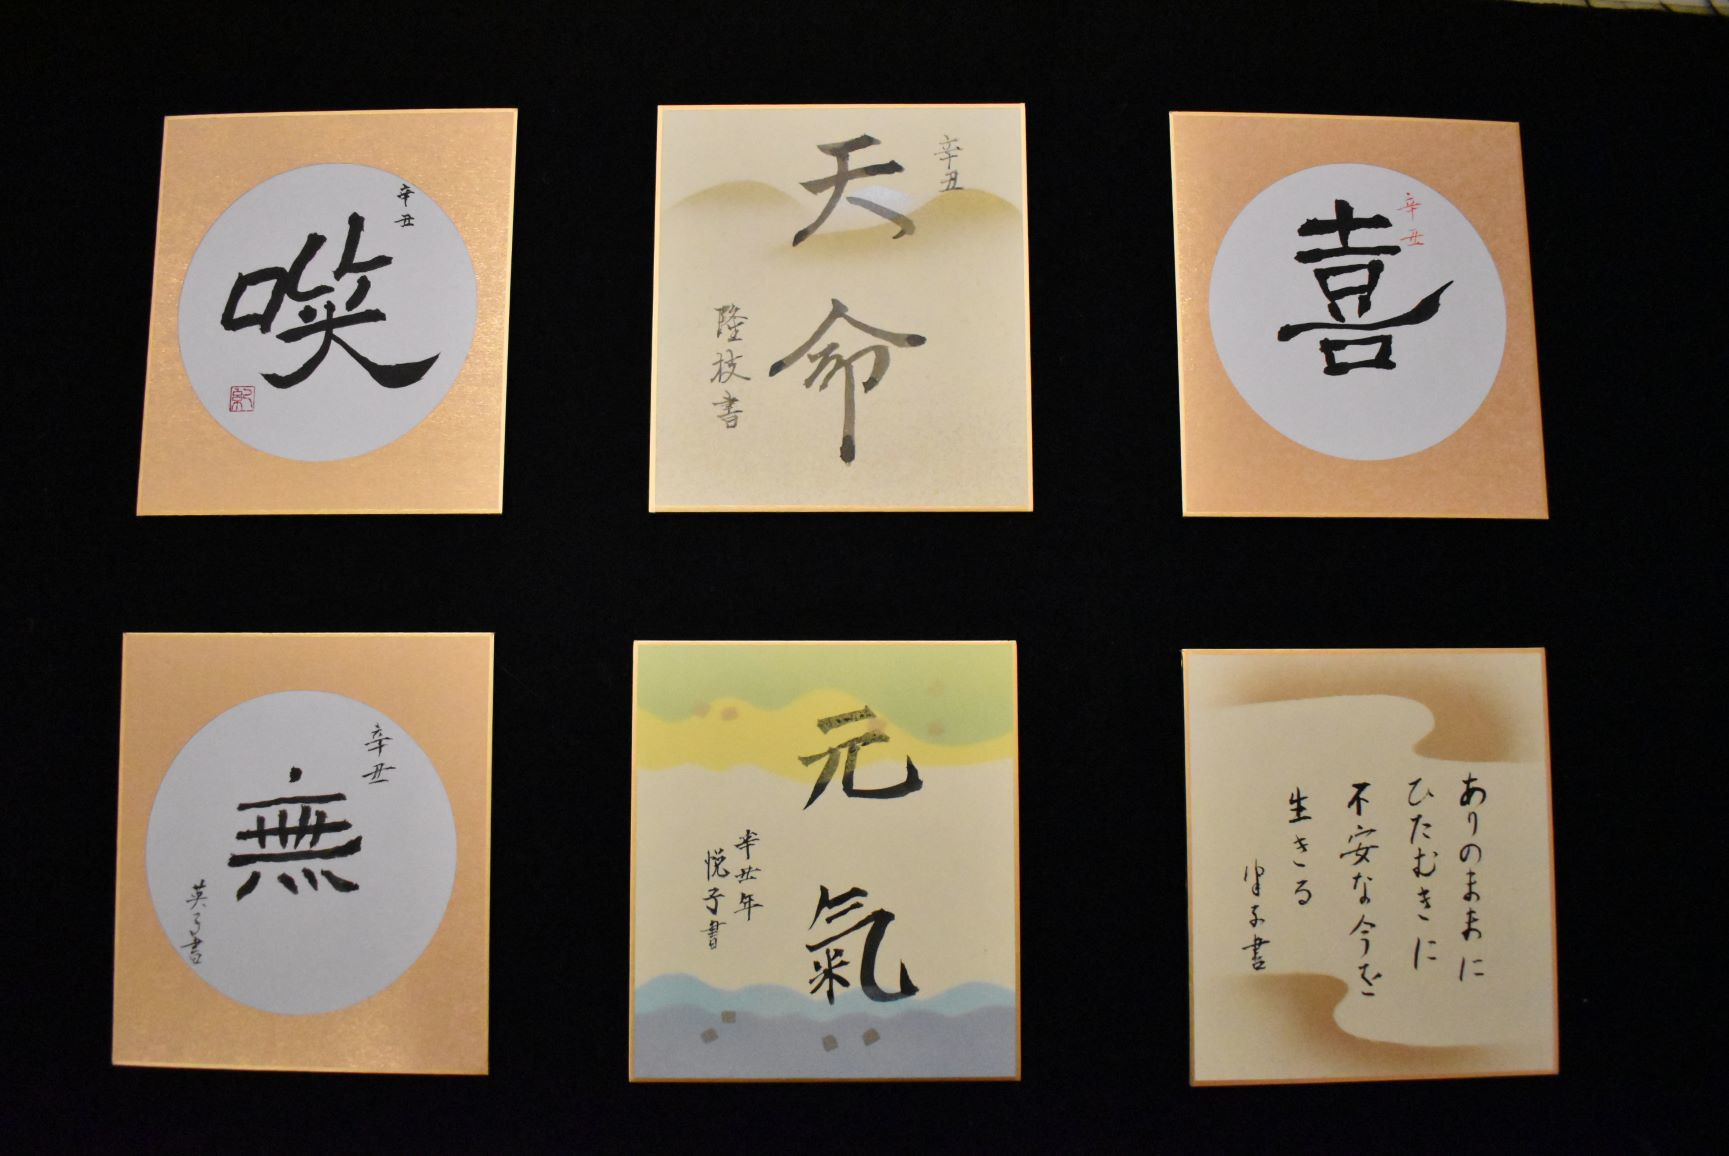 辛丑
噗
天命
辛丑
隆枝書
喜
辛丑
無
辛丑
英子書
元氣
辛丑年
悦子書
ありのままに
ひたむきに
不安な今を
生きる